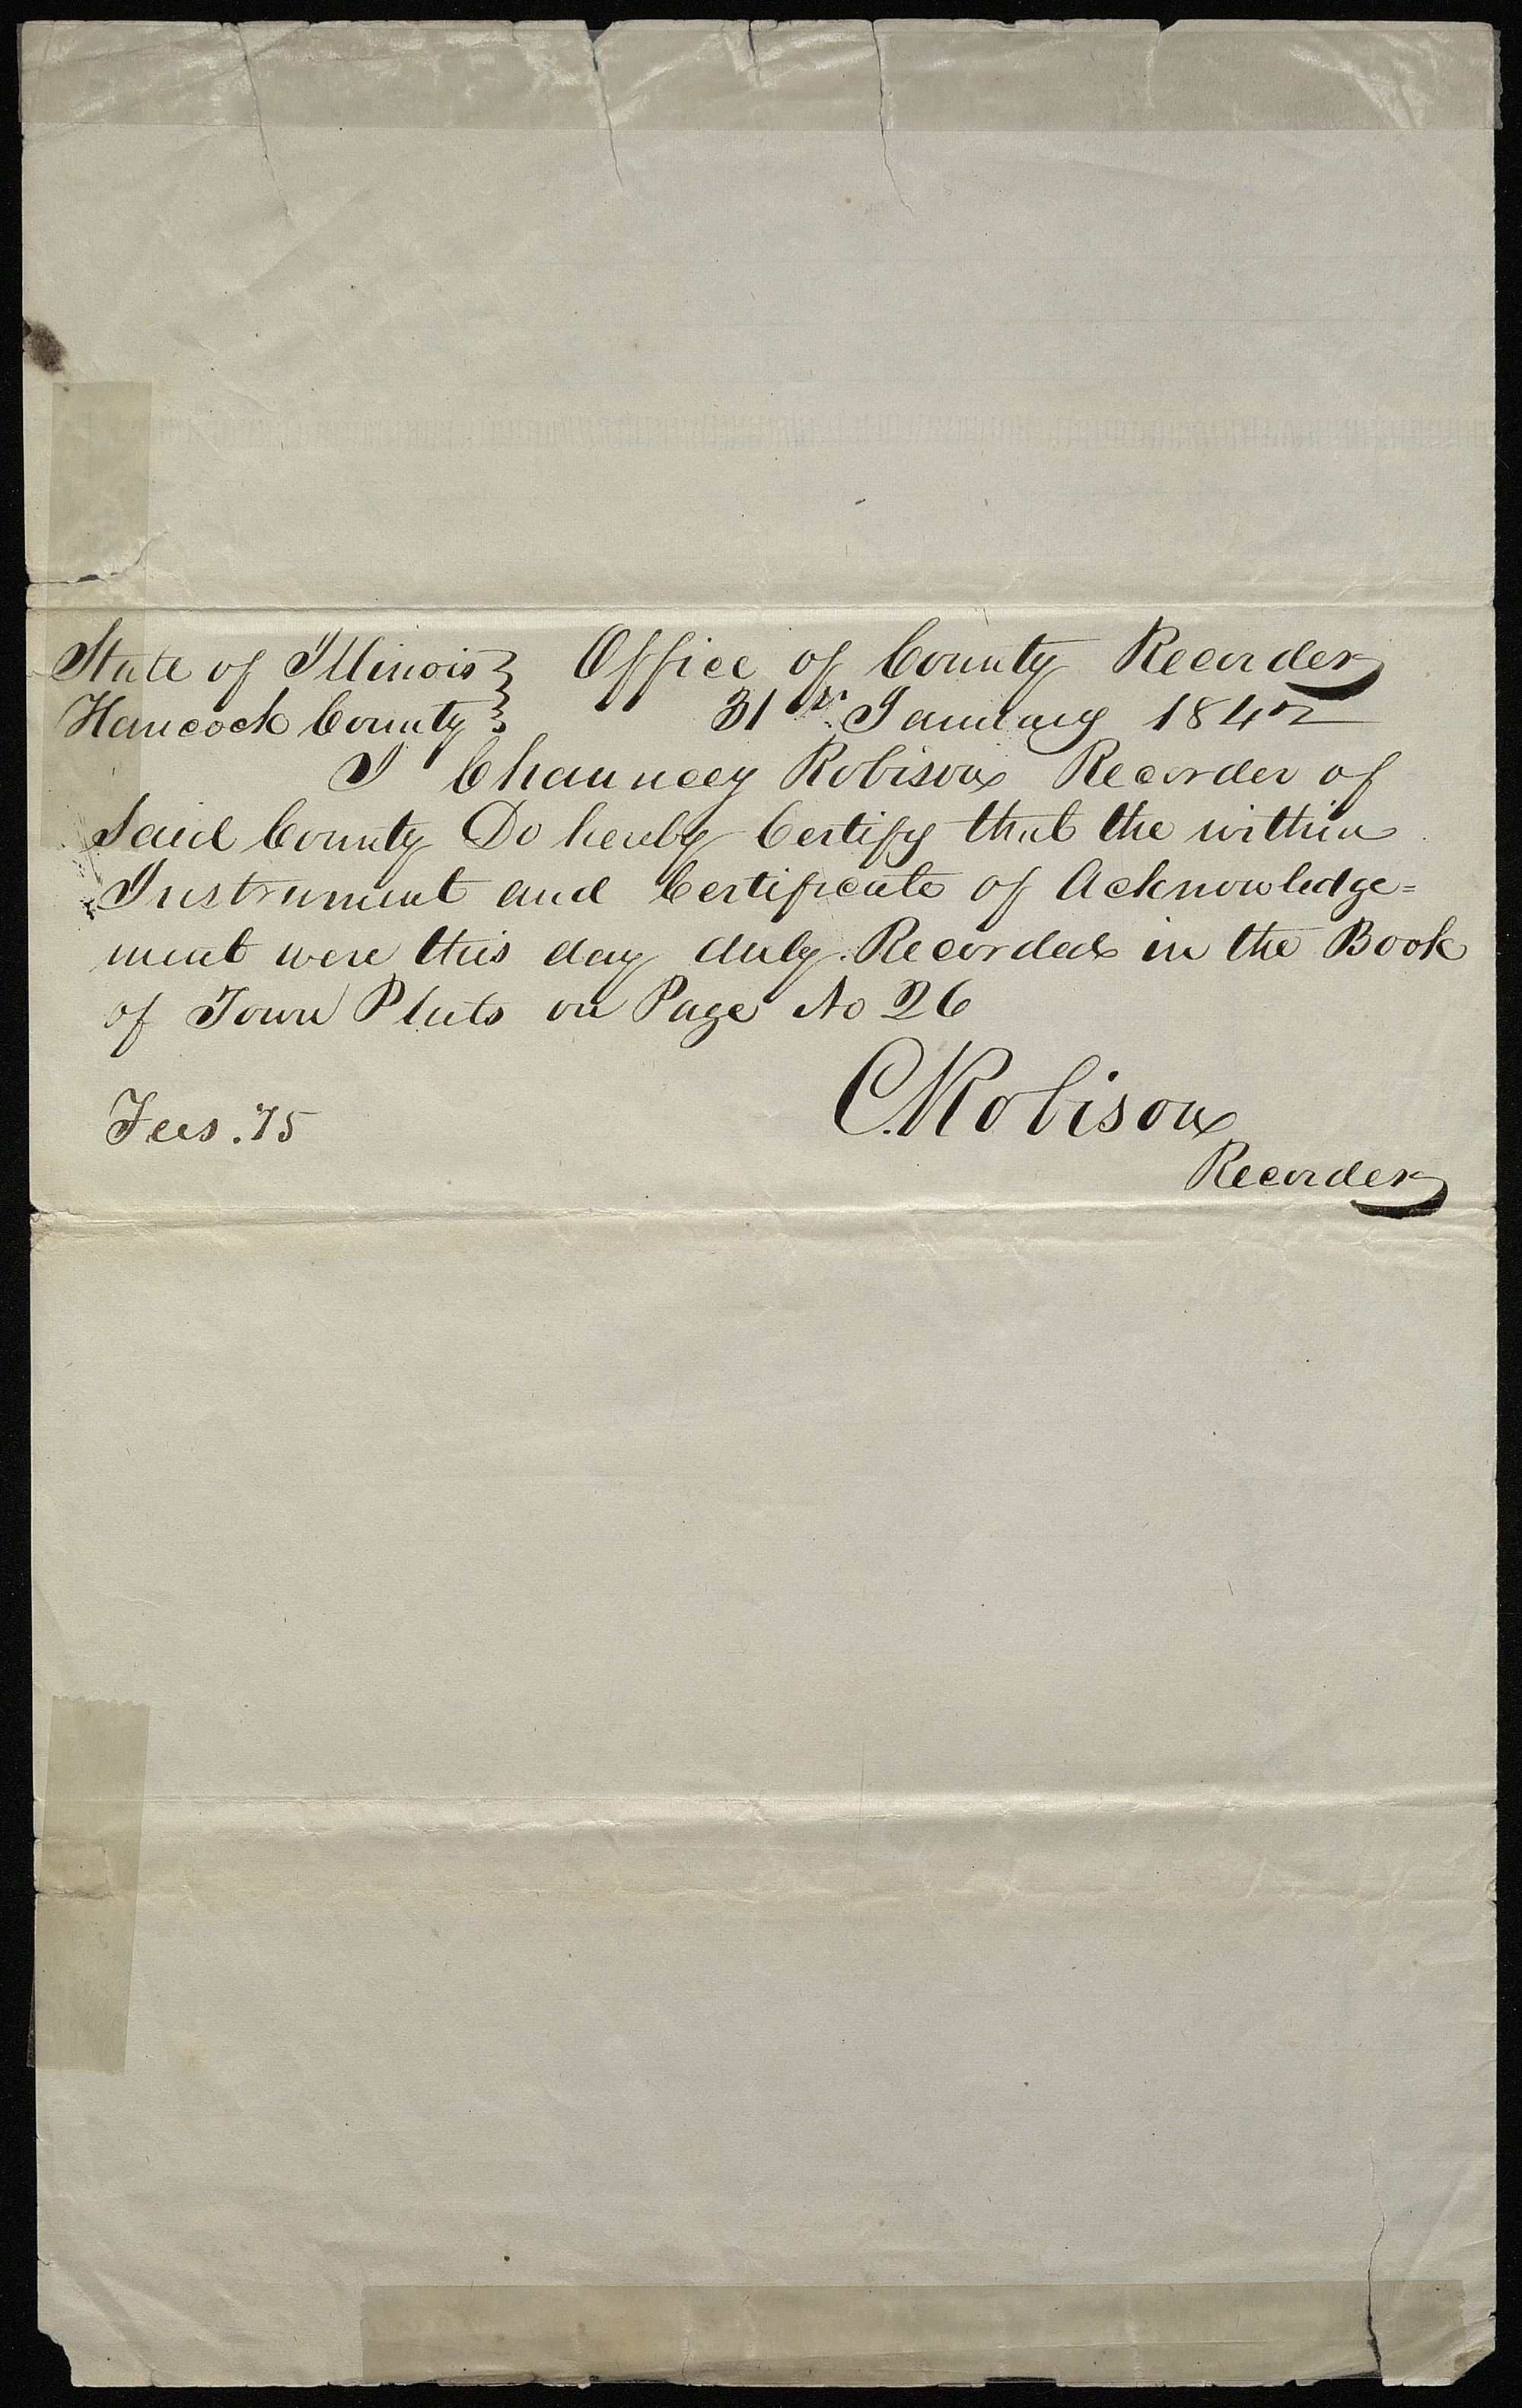 State of Illinois } Office of County Recorder
Hancock County } 31st January 1842
I Chauncey Robison Recorder of
Said County Do hereby Certify that the within
Instrument and Certificate of Acknowledge=
ment were this day duly Recorded in the Book
of Town Plats on Page No 26
C. Robison
Fees .75
Recorder